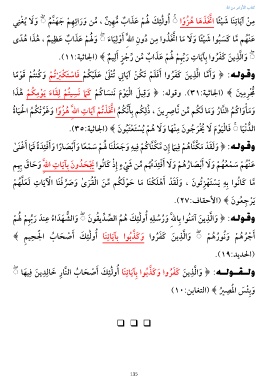 مِنْ آيَاتِنَا شَيْئًا اتَّخَذَهَا هُزُوًا ۚ أُولَٰئِكَ لَهُمْ عَذَابٌ مُّهِينٌ ، مِّن وَرَائِهِمْ جَهَنَّمُ ۖ وَلَا يُغْنِي
عَنْهُم مَّا كَسَبُوا شَيْئًا وَلَا مَا اتَّخَذُوا مِن دُونِ اللَّهِ أَوْلِيَاءَ ۖ وَلَهُمْ عَذَابٌ عَظِيمٌ ، هَٰذَا هُدًى
ۖ وَالَّذِينَ كَفَرُوا بِآيَاتِ رَبِّهِمْ لَهُمْ عَذَابٌ مِّن رِّجْزٍ أَلِيمٌ ﴾ (الجاثية:١١).
وقوله: ﴿ وَأَمَّا الَّذِينَ كَفَرُوا أَفَلَمْ تَكُنْ آيَاتِي تُتْلَىٰ عَلَيْكُمْ فَاسْتَكْبَرْتُمْ وَكُنتُمْ قَوْمًا
مُّجْرِمِينَ ﴾ (الجاثية:٣١). وقوله: ﴿ وَقِيلَ الْيَوْمَ نَنسَاكُمْ كَمَا نَسِيتُمْ لِقَاءَ يَوْمِكُمْ هَٰذَا
وَمَأْوَاكُمُ النَّارُ وَمَا لَكُم مِّن نَّاصِرِينَ ، ذَٰلِكُم بِأَنَّكُمُ اتَّخَذْتُمْ آيَاتِ اللَّهِ هُزُوًا وَغَرَّتْكُمُ الْحَيَاةُ
الدُّنْيَا ۚ فَالْيَوْمَ لَا يُخْرَجُونَ مِنْهَا وَلَا هُمْ يُسْتَعْتَبُونَ ﴾ (الجاثية:٣٥).
وقوله: ﴿ وَلَقَدْ مَكَّنَّاهُمْ فِيمَا إِن مَّكَّنَّاكُمْ فِيهِ وَجَعَلْنَا لَهُمْ سَمْعًا وَأَبْصَارًا وَأَفْئِدَةً فَمَا أَغْنَىٰ
عَنْهُمْ سَمْعُهُمْ وَلَا أَبْصَارُهُمْ وَلَا أَفْئِدَتُهُم مِّن شَيْءٍ إِذْ كَانُوا يَجْحَدُونَ بِآيَاتِ اللَّهِ وَحَاقَ بِهِم
مَّا كَانُوا بِهِ يَسْتَهْزِئُونَ ، وَلَقَدْ أَهْلَكْنَا مَا حَوْلَكُم مِّنَ الْقُرَىٰ وَصَرَّفْنَا الْآيَاتِ لَعَلَّهُمْ
يَرْجِعُونَ ﴾ (الأحقاف:٢٧).
وقوله: ﴿ وَالَّذِينَ آمَنُوا بِاللَّهِ وَرُسُلِهِ أُولَٰئِكَ هُمُ الصِّدِّيقُونَ ۖ وَالشُّهَدَاءُ عِندَ رَبِّهِمْ لَهُمْ
أَجْرُهُمْ وَنُورُهُمْ ۖ وَالَّذِينَ كَفَرُوا وَكَذَّبُوا بِآيَاتِنَا أُولَٰئِكَ أَصْحَابُ الْجَحِيمِ ﴾
(الحديد:١٩).
ولقوله: ﴿ وَالَّذِينَ كَفَرُوا وَكَذَّبُوا بِآيَاتِنَا أُولَٰئِكَ أَصْحَابُ النَّارِ خَالِدِينَ فِيهَا ۖ
وَبِئْسَ الْمَصِيرُ ﴾ (التغابن:١٠)